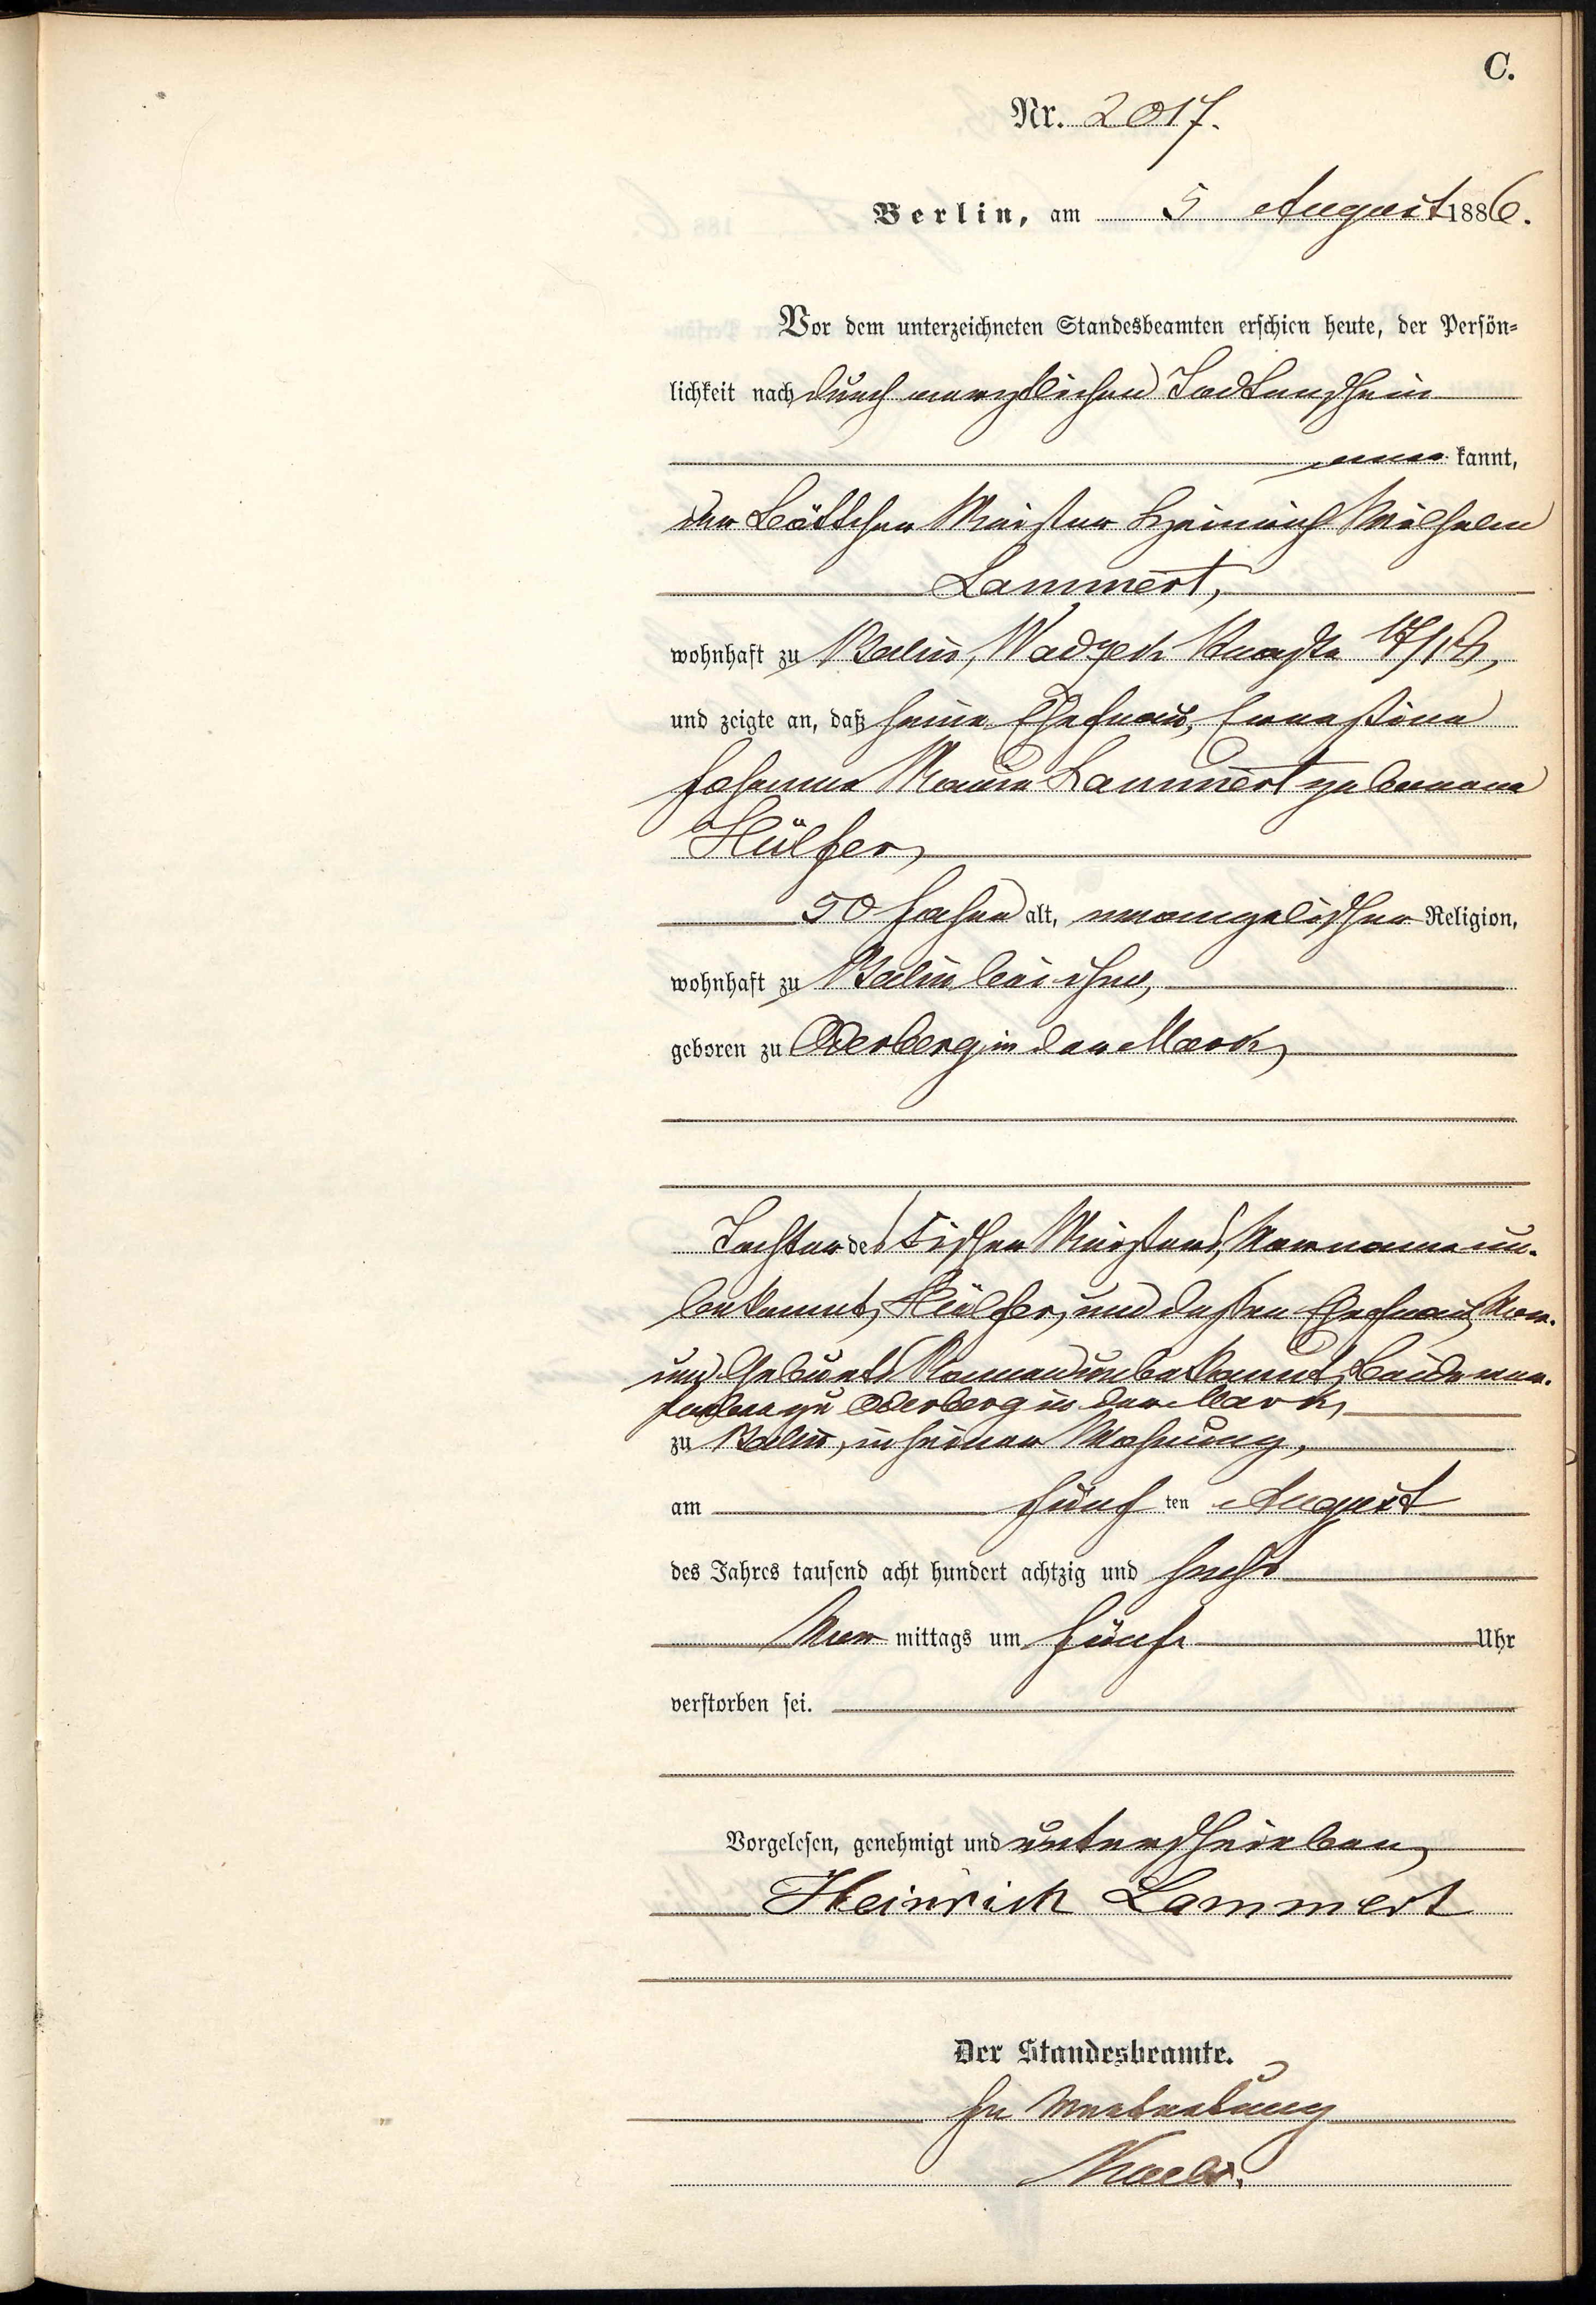 C.
Nr. 2017.
Berlin, am 5 August 1886.
Vor dem unterzeichneten Standesbeamten erschien heute, der Persön-
lichkeit nach durch aerztlichen Todtenschein
aner kannt,
der Böttcher Meister Heinrich Wilhelm
Lammert,
wohnhaft zu Berlin, Wadzeck Straße
und zeigte an, daß seine Ehefrau, Ernestine
Johanne Marie Lammert geborene
Hülfer,
50 Jahre alt, evangelischer Religion,
wohnhaft zu Berlin bei ihm,
geboren zu Oderberg in der Mark,
Tochter des Tischler Meisters, Vorname un-
bekannt, Hülfer, und dessen Ehefrau, Vor-
und Geburts Namen unbekannt, Beide ver-
storben zu Oderberg in der Mark,
zu Berlin, in seiner Wohnung,
am fünf ten August
des Jahres tausend acht hundert achtzig und sechs
Vor mittags um fünf Uhr
verstorben sei.
Vorgelesen, genehmigt und unterschrieben
Heinrich Lammert
Der Standesbeamte.
In Vertretung